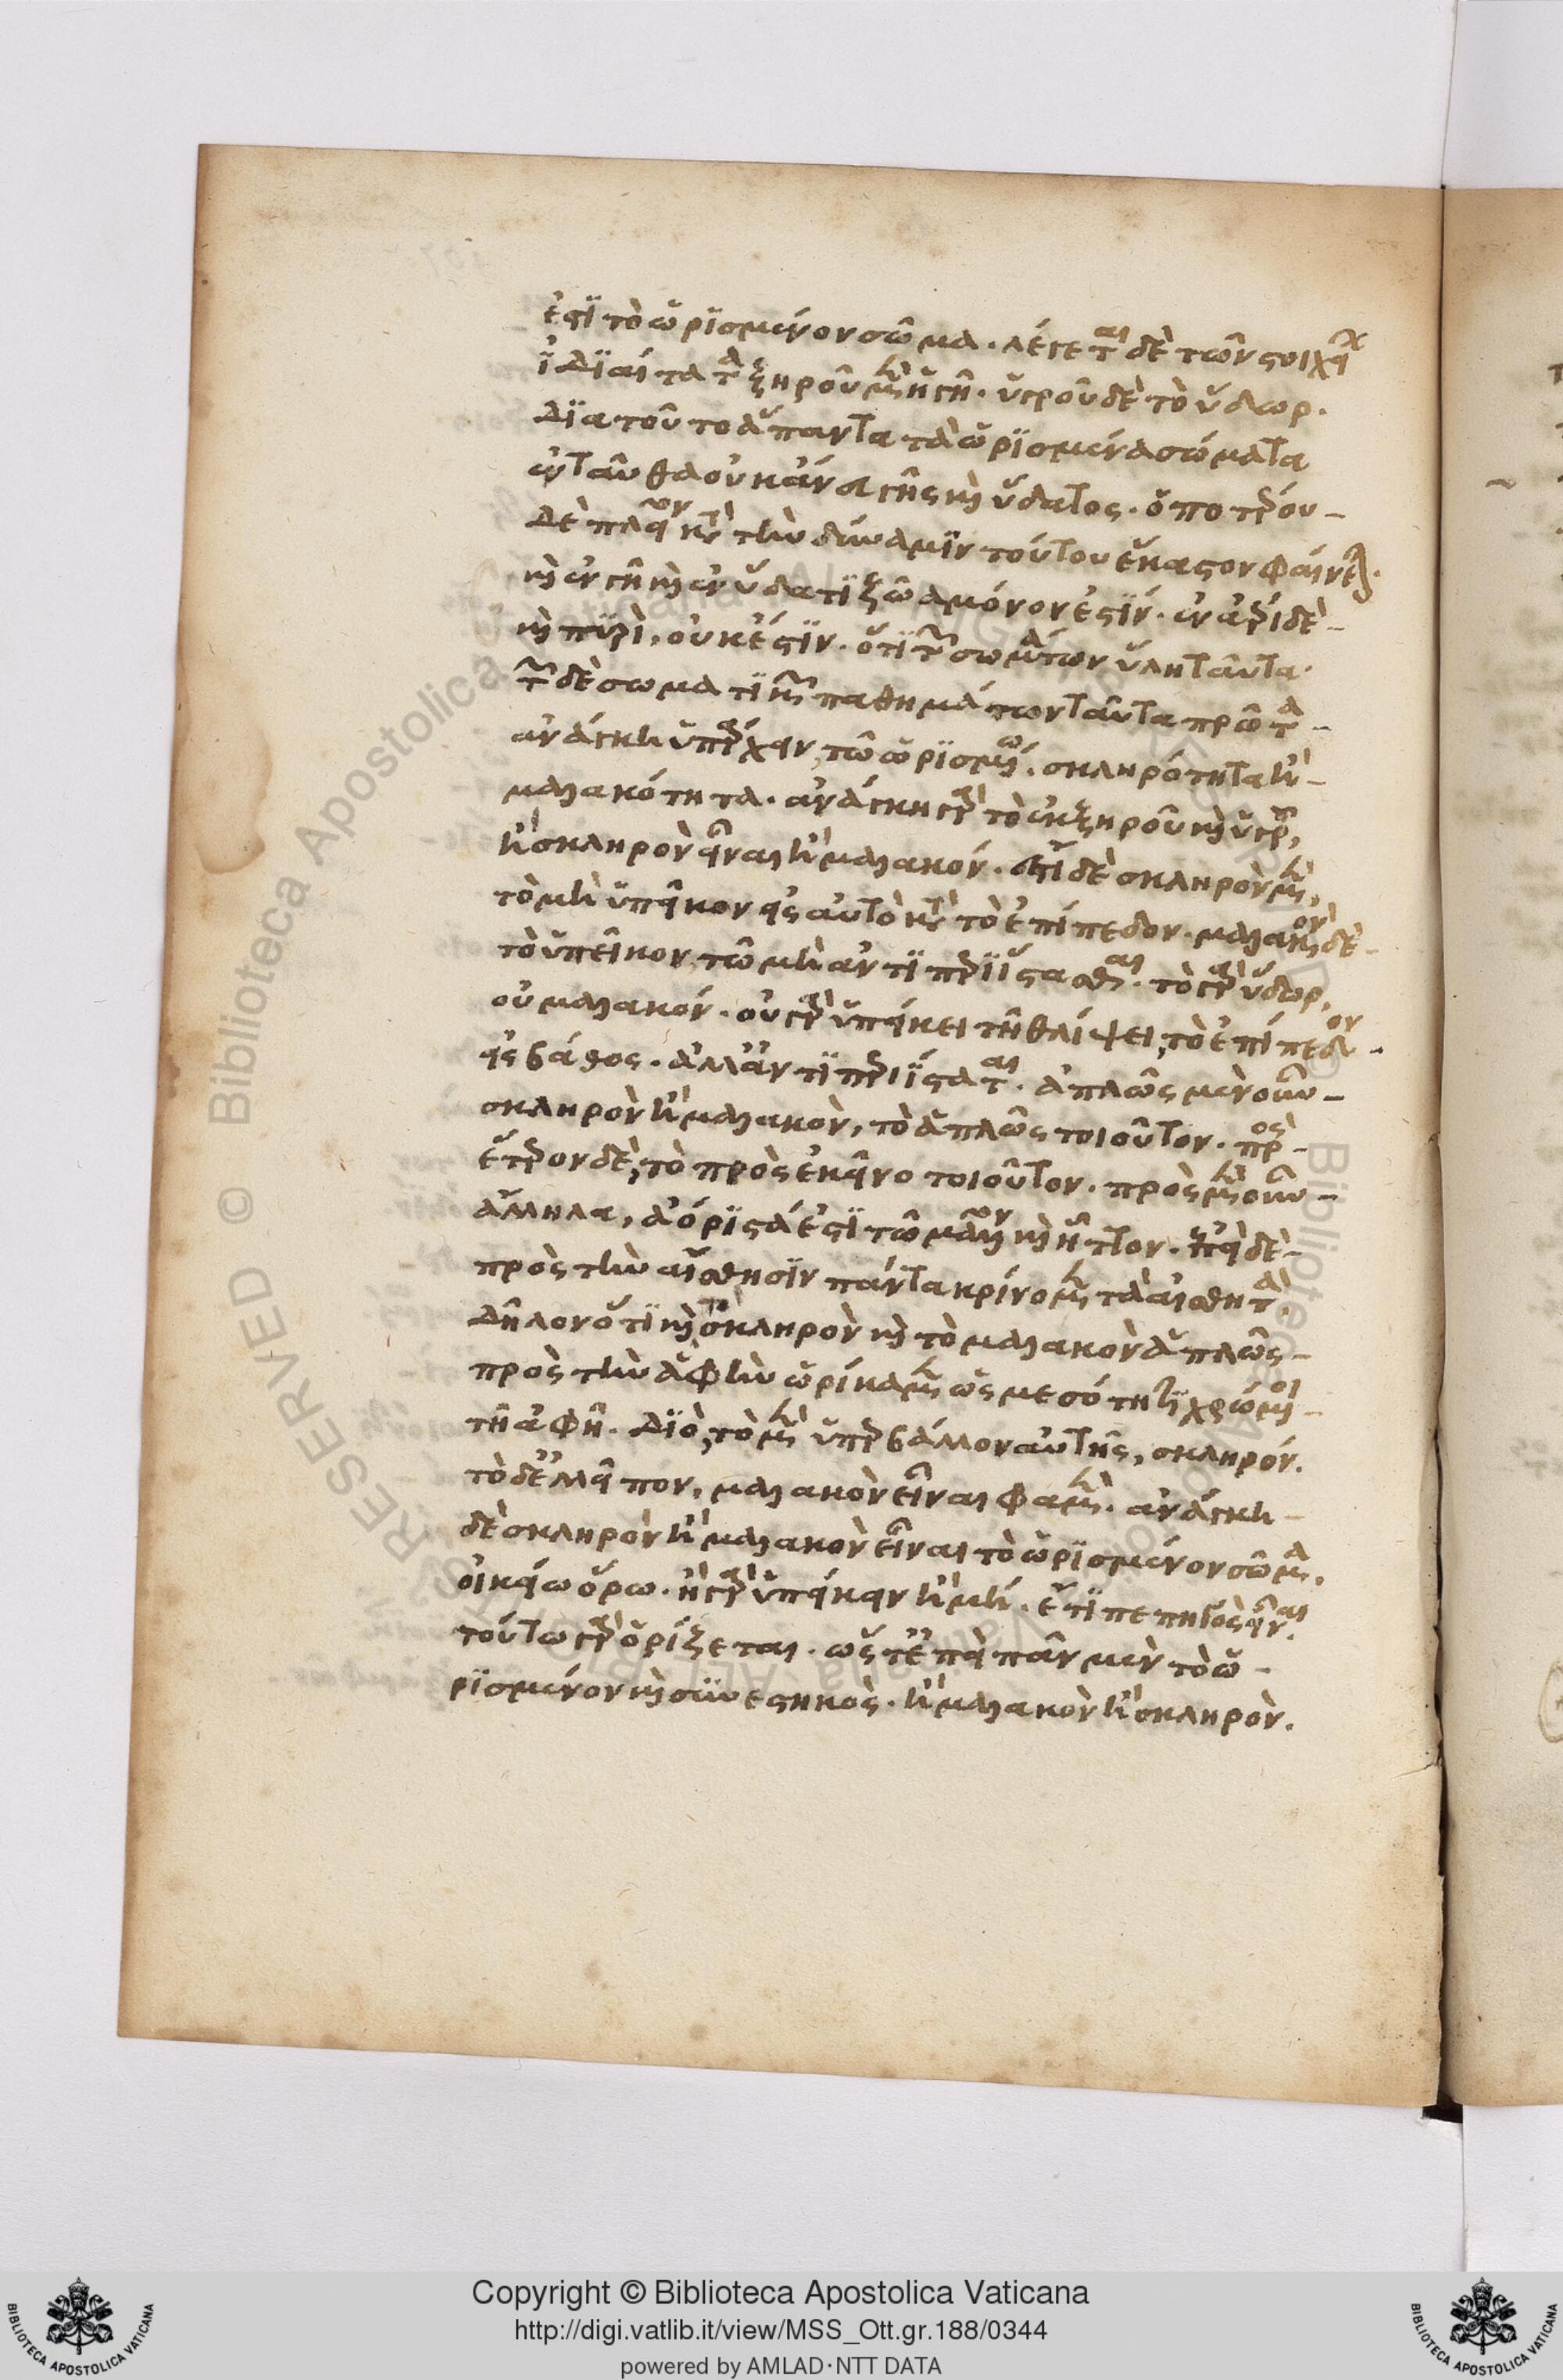 ἐστὶ τὸ ὡρισμένον σῶμα. λέγεται δὲ τῶν στοιχείων
ἰδιαίτατα ξηροῦ μὲν ἡ γῆ. ὑγροῦ δὲ τὸ ὕδωρ.
διατοῦτο ἅπαντα τὰ ὡρισμένα σώματα
ἐνταῦθα οὐκ ἄνευ γῆς καὶ ὕδατος. ὁποτέρου
δὲ πλεῖον κατὰ τὴν δύναμιν τούτου ἕκαστον φαίνεται.
καὶ ἐν γῇ καὶ ἐν ὕδατι ζῶα μόνον ἐστίν. ἐν ἀέρι δὲ
καὶ πυρὶ, οὐκ ἔστιν. ὅτι τῶν σωμάτων ὕλη ταῦτα.
τῶν δὲ σωματικῶν παθημάτων ταῦτα πρῶτα
ἀνάγκη ὑπάρχειν τῶ ὡρισμένω. σκληρότητα ἢ
μαλακότητα. ἀνάγκη γὰρ τὸ ἐκ ξηροῦ καὶ ὑγροῦ,
ἢ σκληρὸν εἶναι ἢ μαλακόν. ἐστὶ δὲ σκληρὸν μὲν,
τὸ μὴ ὑπεῖκον εἰς αὑτὸ κατὰ τὸ ἐπίπεδον. μαλακὸν δὲ
τὸ ὑπεῖκον τῶ μὴ ἀντιπεριίστασθαι. τὸ γὰρ ὕδωρ,
οὐ μαλακόν. οὐ γὰρ ὑπείκει τῆ θλίψει, τὸ ἐπίπεδον
εἰς βάθος. ἀλλ' ἀντιπεριίσταται. ἁπλῶς μὲν οὖν
σκληρὸν ἢ μαλακὸν, τὸ ἁπλῶς τοιοῦτον. πρὸς
ἕτερον δὲ, τὸ πρὸς ἐκεῖνο τοιοῦτον. πρὸς μὲν οὖν
ἄλληλα, ἀόριστά ἐστι τῶ μᾶλλον καὶ ἧττον. ἐπεὶ δὲ
πρὸς τὴν αἴσθησιν πάντα κρίνομεν τὰ αἰσθητὰ,
δῆλον ὅτι καὶ τὸ σκληρὸν καὶ τὸ μαλακὸν ἁπλῶς
πρὸς τὴν ἁφὴν ὡρίκαμεν ὡς μεσότητι χρώμενοι
τῆ ἁφῆ. διὸ, τὸ μὲν ὑπερβάλλον αὐτῆς, σκληρόν.
τὸ δ' ἐλλεῖπον, μαλακὸν εἶναι φαμέν. ἀνάγκη
δὲ σκληρὸν ἢ μαλακὸν εἶναι τὸ ὡρισμένον σῶμα,
οἰκείω ὅρω. ἢ γὰρ ὑπείκειν ἢ μή. ἔτι πεπηγὸς εἶναι.
τούτω γὰρ ὁρίζεται. ὥστ' ἐπεὶ πᾶν μὲν τὸ ὡ
ρισμένον καὶ συνεστηκὸς. ἢ μαλακὸν ἢ σκληρὸν.
Copyright © Biblioteca Apostolica Vaticana
http://digi.vatlib.it/view/MSS_Ott.gr.188/0344
powered by AMLAD·NTT DATA